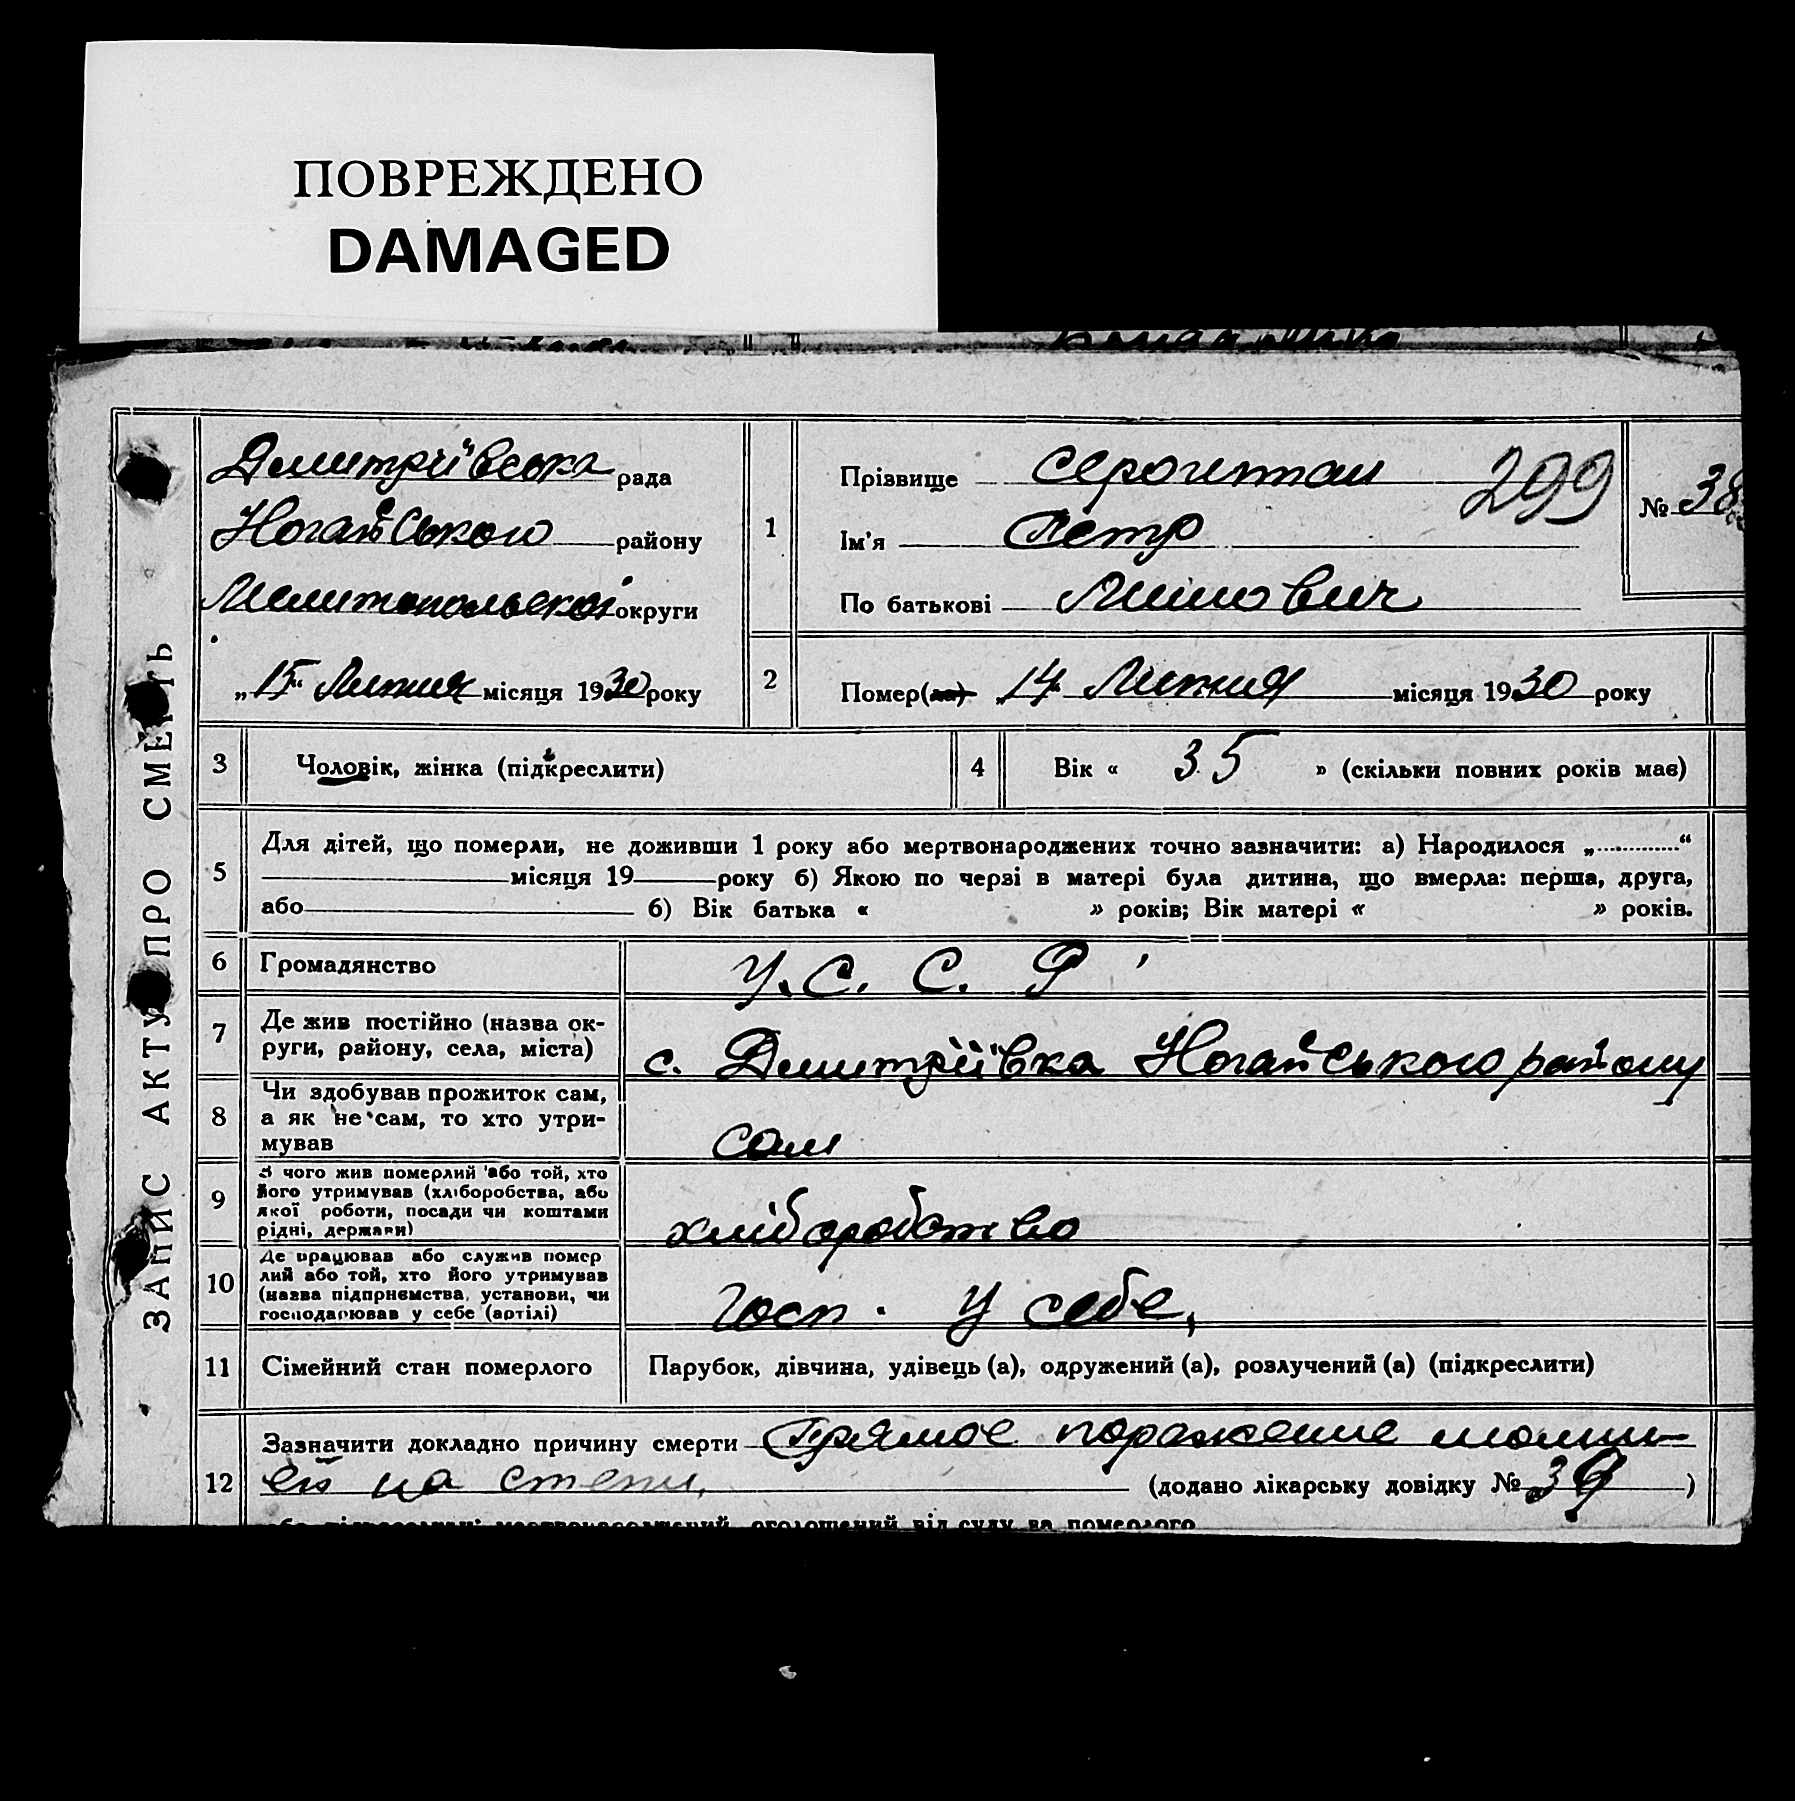 ПОВРЕЖДЕНО
DAMAGED
ЗАПИС АКТУ ПРО СМЕРТЬ
Дмитріївська рада
Ногайського району
Мелитопольської округи
„15" Липня місяця 1930 року
1
Прізвище
299
Ім'я Петр
По батькові
№ 38
2
Помер(ла) 14 Липня місяця 1930 року
3 Чоловік, жінка (підкреслити)
4 Вік « 35 » (скільки повних років має)
5
Для дітей, що померли, не доживши 1 року або мертвонароджених точно зазначити: а) Народилося „ “
місяця 19 року б) Якою по черзі в матері була дитина, що вмерла: перша, друга,
або б) Вік батька « » років; Вік матері « » років.
6 Громадянство У.С.С.Р
7 Де жив постійно (назва ок-
руги, району, села, міста) с. Дмитріївка Ногайського району
8 Чи здобував прожиток сам,
а як не сам, то хто утри-
мував сам
9 З чого жив померлий або той, хто
його утримував (хліборобства, або
якої роботи, посади чи коштами
рідні, держави) хліборобство
10 Де працював або служив помер
лий або той, хто його утримував
(назва підприємства, установи, чи
господарював у себе (артілі) госп. у себе,
11 Сімейний стан померлого Парубок, дівчина, удівець (а), одружений (а), розлучений (а) (підкреслити)
12 Зазначити докладно причину смерти Прямое поражение молни-
ей на степи. (додано лікарську довідку № 39 )